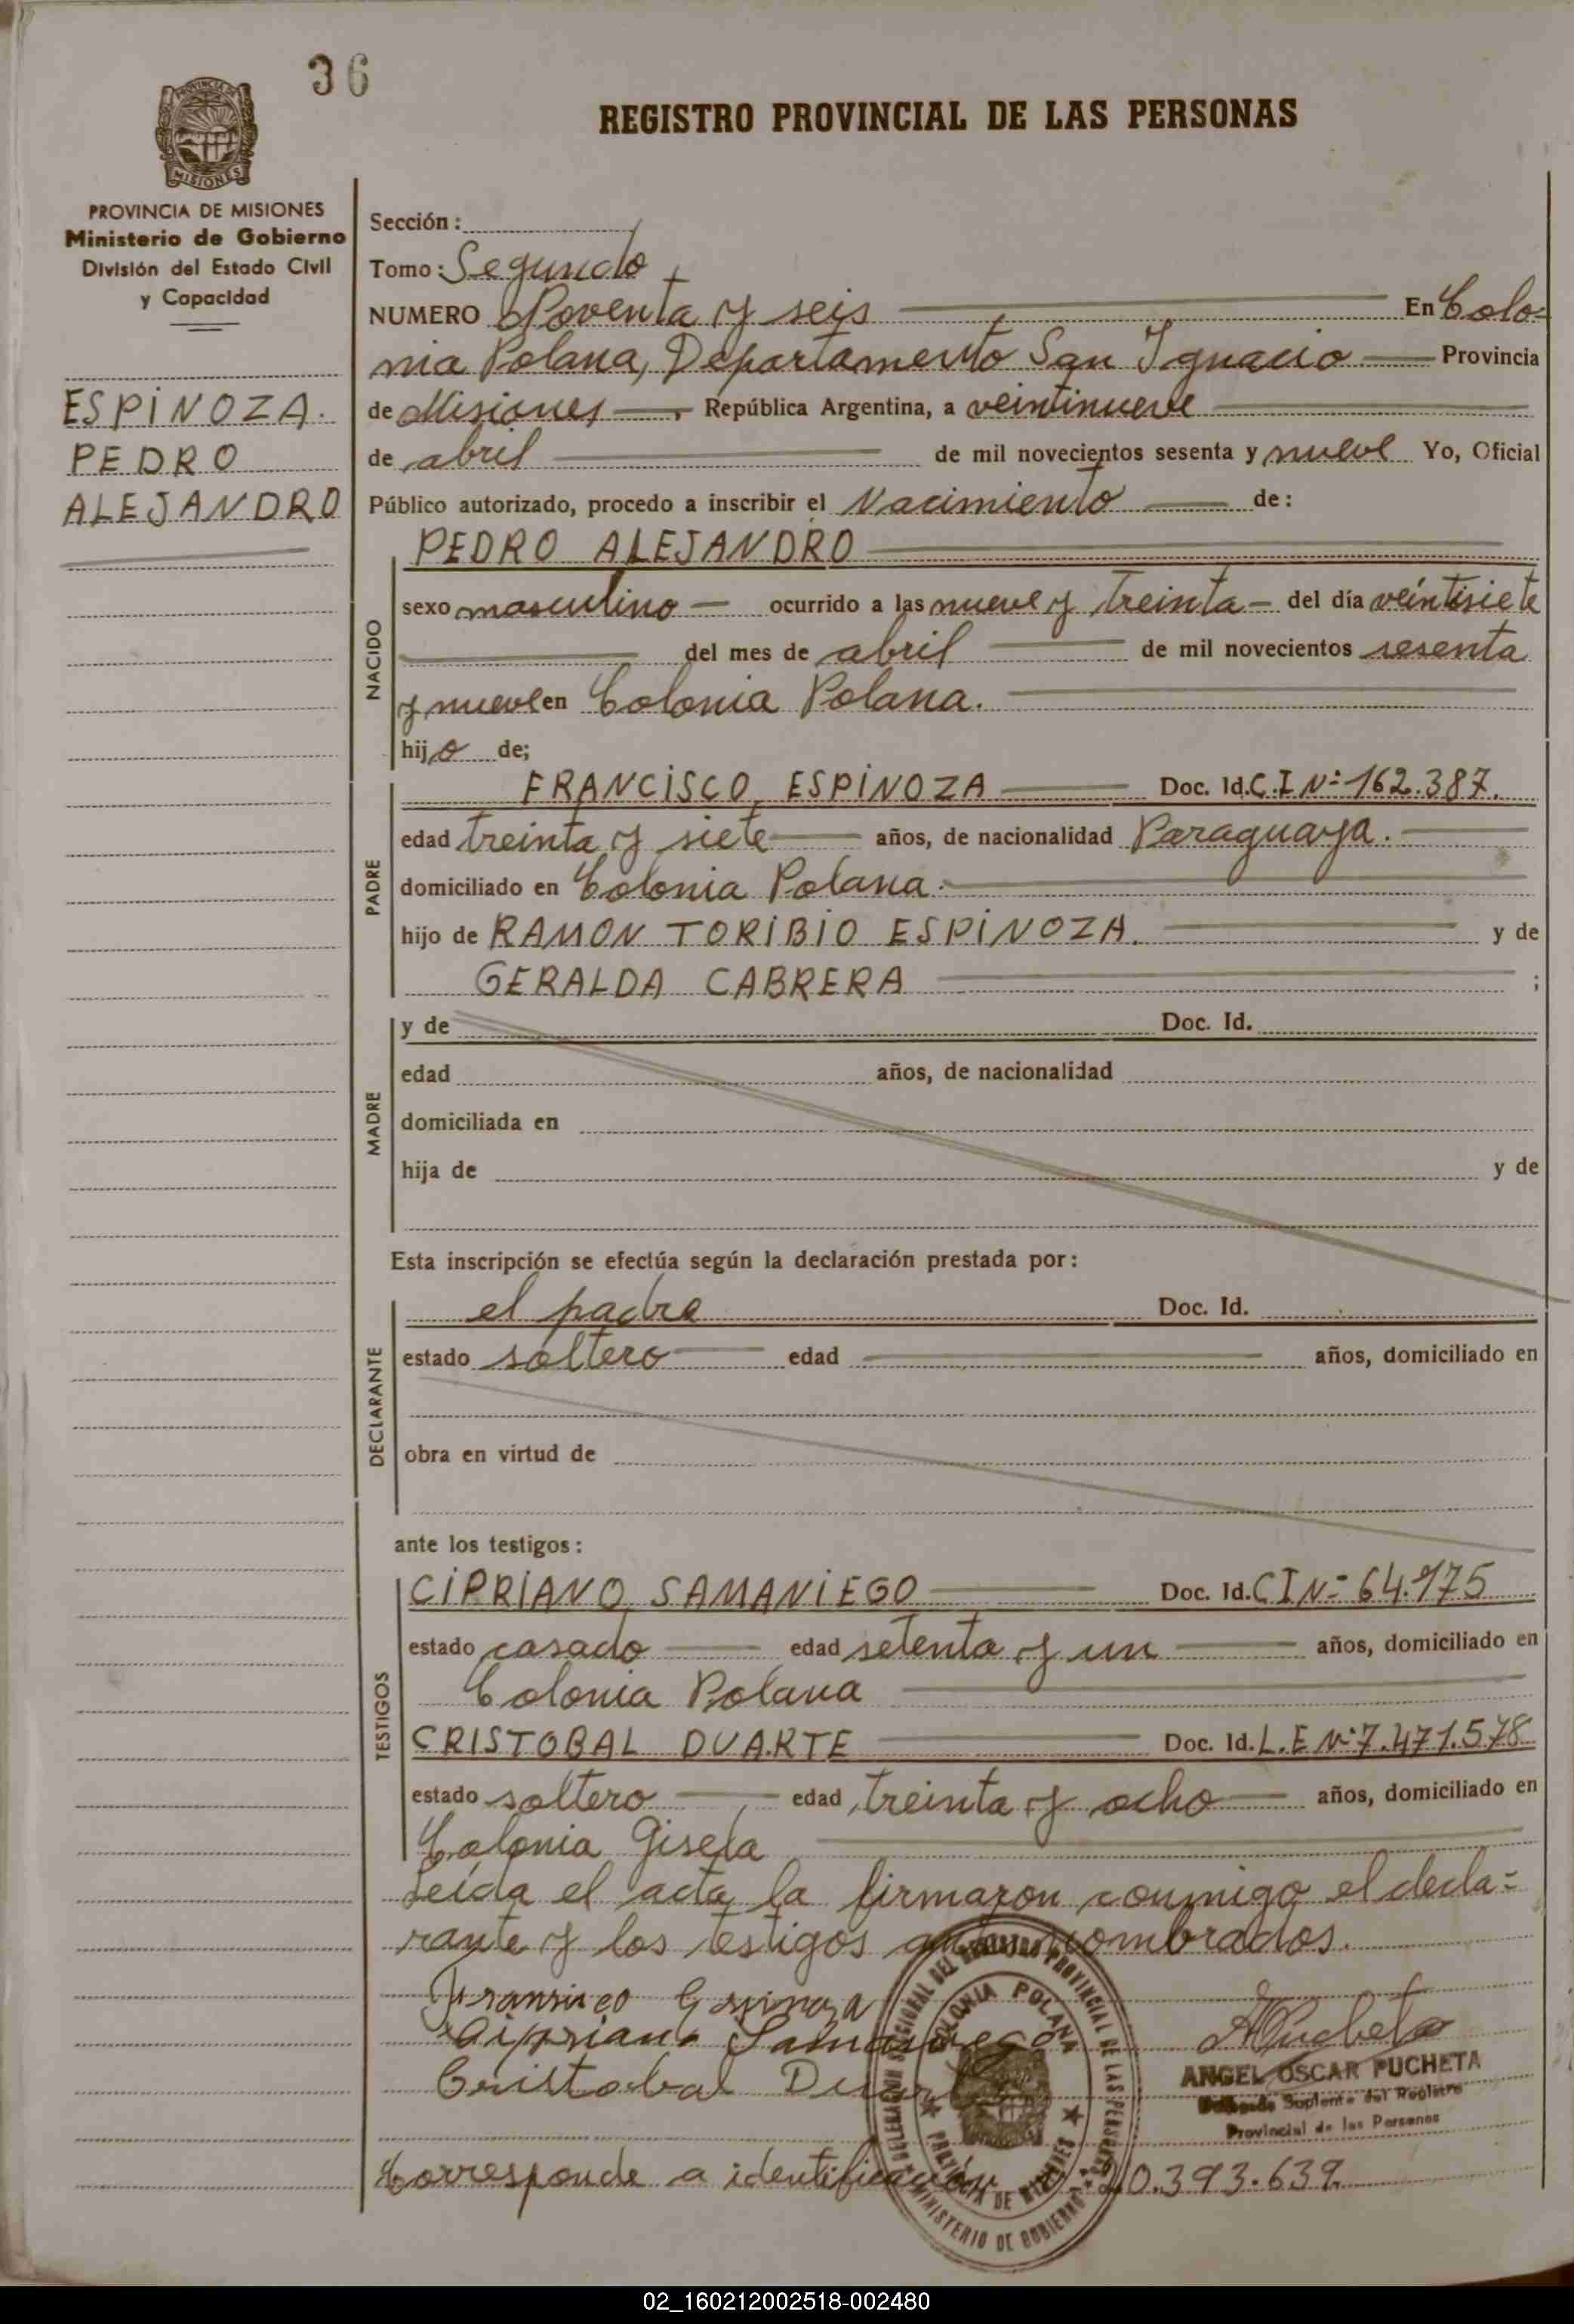 36
REGISTRO PROVINCIAL DE LAS PERSONAS
PROVINCIA DE MISIONES
Ministerio de Gobierno
División del Estado Civil
y Capacidad
ESPINOZA.
PEDRO
ALEJANDRO
Sección:
Tomo: Segundo
NUMERO Noventa y seis En Colo=
nia Polana, Departamento San Ignacio Provincia
de Misiones, República Argentina, a veintinueve
de abril de mil novecientos sesenta y nueve Yo, Oficial
Público autorizado, procedo a inscribir el Nacimiento de:
PEDRO ALEJANDRO
NACIDO
sexo masculino ocurrido a las nueve y treinta del día veintisiete
del mes de abril de mil novecientos sesenta
y nueve en Colonia Polana.
hijo de;
PADRE
FRANCISCO ESPINOZA Doc. Id. C.I Nº 162.387.
edad treinta y siete años, de nacionalidad Paraguaya.
domiciliado en Colonia Polana.
hijo de RAMON TORIBIO ESPINOZA. y de
GERALDA CABRERA ;
MADRE
y de Doc. Id.
edad años, de nacionalidad
domiciliada en
hija de y de
Esta inscripción se efectúa según la declaración prestada por:
DECLARANTE
el padre Doc. Id.
estado soltero edad años, domiciliado en
obra en virtud de
ante los testigos:
TESTIGOS
CIPRIANO SAMANIEGO Doc. Id. C I Nº 64.975
estado casado edad setenta y un años, domiciliado en
Colonia Polana
CRISTOBAL DUARTE Doc. Id. L.E Nº 7.471.578
estado soltero edad treinta y ocho años, domiciliado en
Colonia Gisela
Leída el acta la firmaron conmigo el decla=
rante y los testigos ante nombrados.
Francisco Espinoza
Cipriano Samaniego
Cristobal Duarte
DELEGACION SECCIONAL DEL REGISTRO PROVINCIAL DE LAS PERSONAS
COLONIA POLANA
PROVINCIA DE MISIONES
MINISTERIO DE GOBIERNO
APucheta
ANGEL OSCAR PUCHETA
Delegado Suplente del Registro
Provincial de las Personas
Corresponde a identificación Nº 20.393.639.
02_160212002518-002480